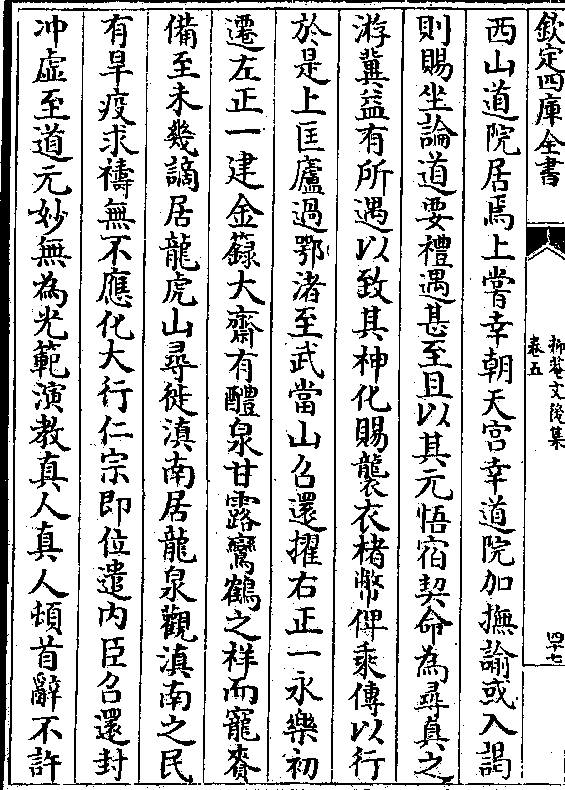 欽定四庫全書
抑菴文後集
卷五
四十七
西山道院居焉上嘗幸朝天宮幸道院加撫諭或入謁
則賜坐論道要禮遇甚至且以其元悟宿契命為尋真之
游冀益有所遇以致其神化賜襲衣楮幣俾乘傳以行
於是上匡廬過鄂渚至武當山召還擢右正一永樂初
遷左正一建金籙大齋有醴泉甘露鸞鶴之祥而寵賚
備至未幾謫居龍虎山尋徙滇南居龍泉觀滇南之民
有旱疫求禱無不應化大行仁宗即位遣内臣召還封
冲虛至道元妙無為光範演教真人真人頓首辭不許